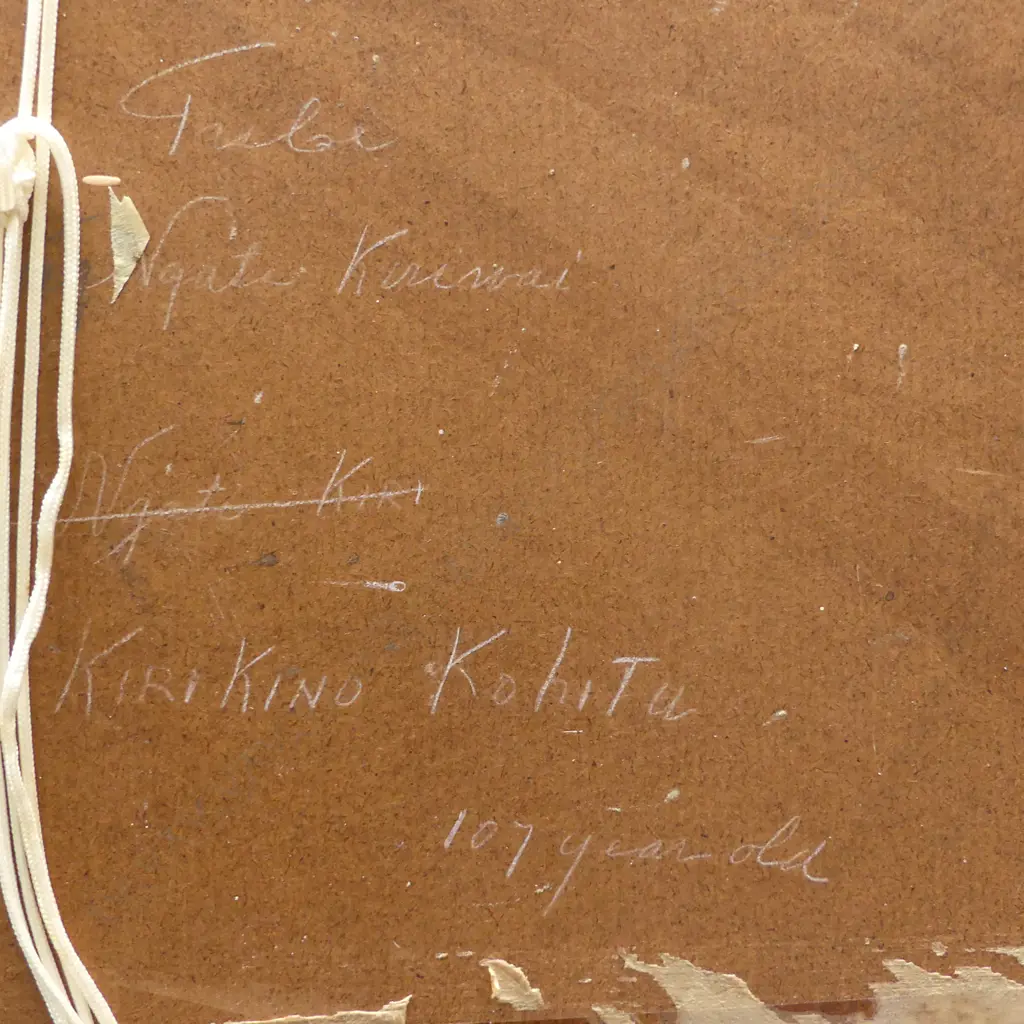 Tribe
Ngate Kiriwai
Ngate Kiri
KIRIKINO KohiTu
107 year old